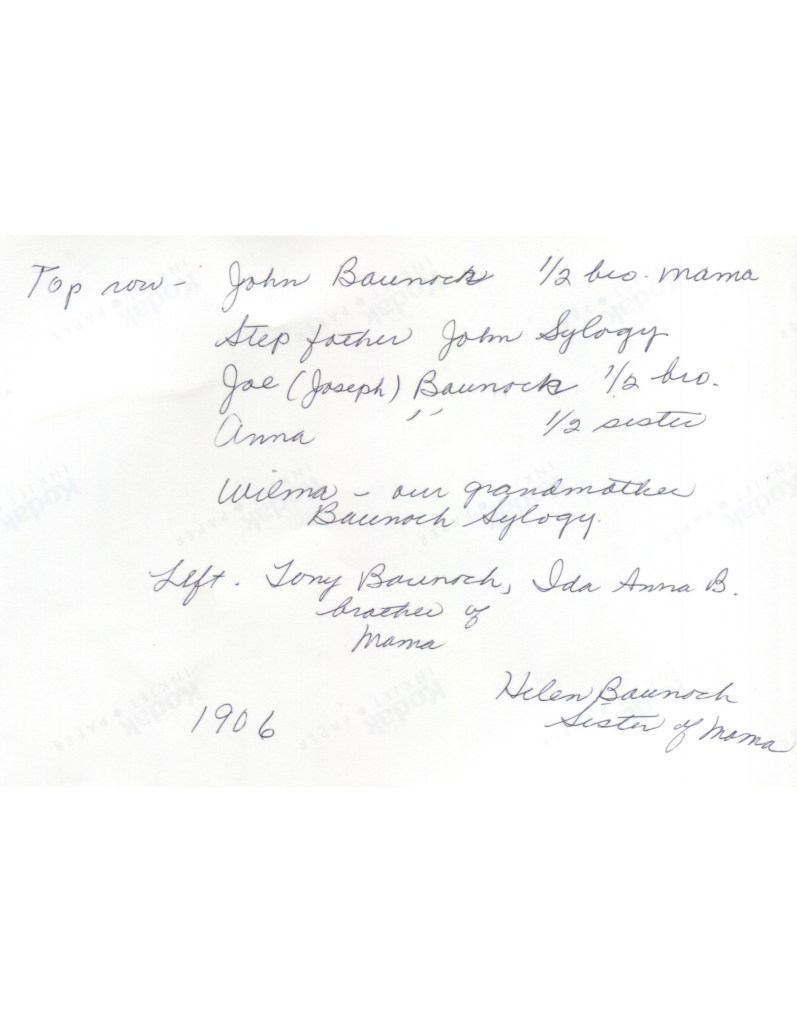 Top row - John Baunock 1/2 bro. mama
Step father John Sylogy
Joe (Joseph) Baunock 1/2 bro.
Anna " 1/2 sister
Wilma - our grandmother
Baunoch Sylogy.
Left. Tony Baunoch, Ida Anna B.
brother of
Mama
Helen Baunoch
Sister of Mama
1906